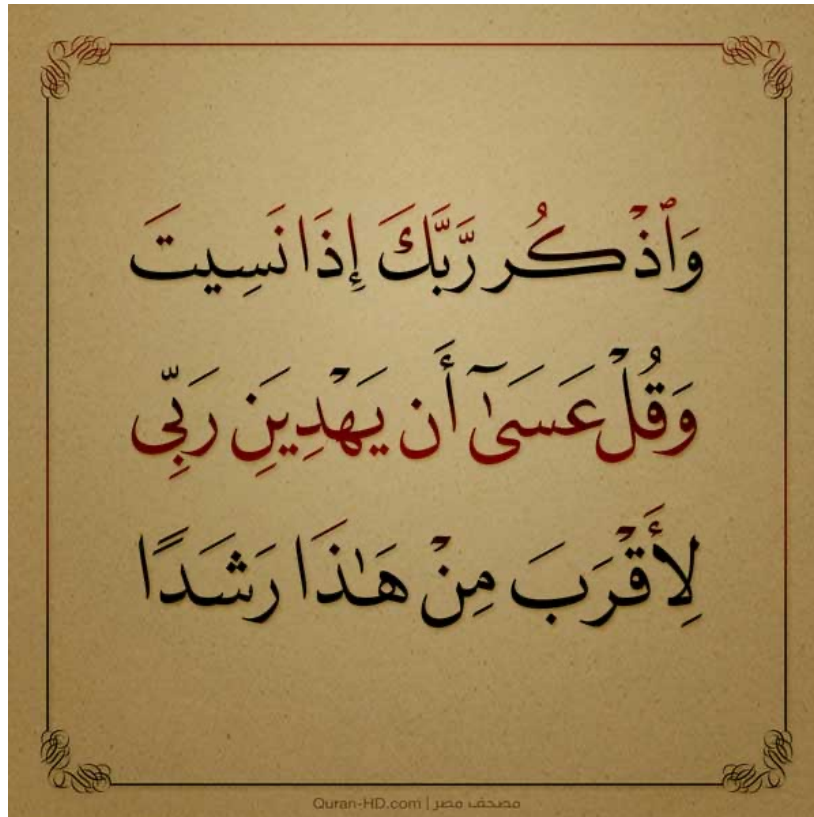 وَٱذْكُر رَّبَّكَ إِذَا نَسِيتَ
وَقُلْ عَسَىٰٓ أَن يَهْدِيَنِ رَبِّى
لِأَقْرَبَ مِنْ هَٰذَا رَشَدًا
Quran-HD.com | مصحف مصر